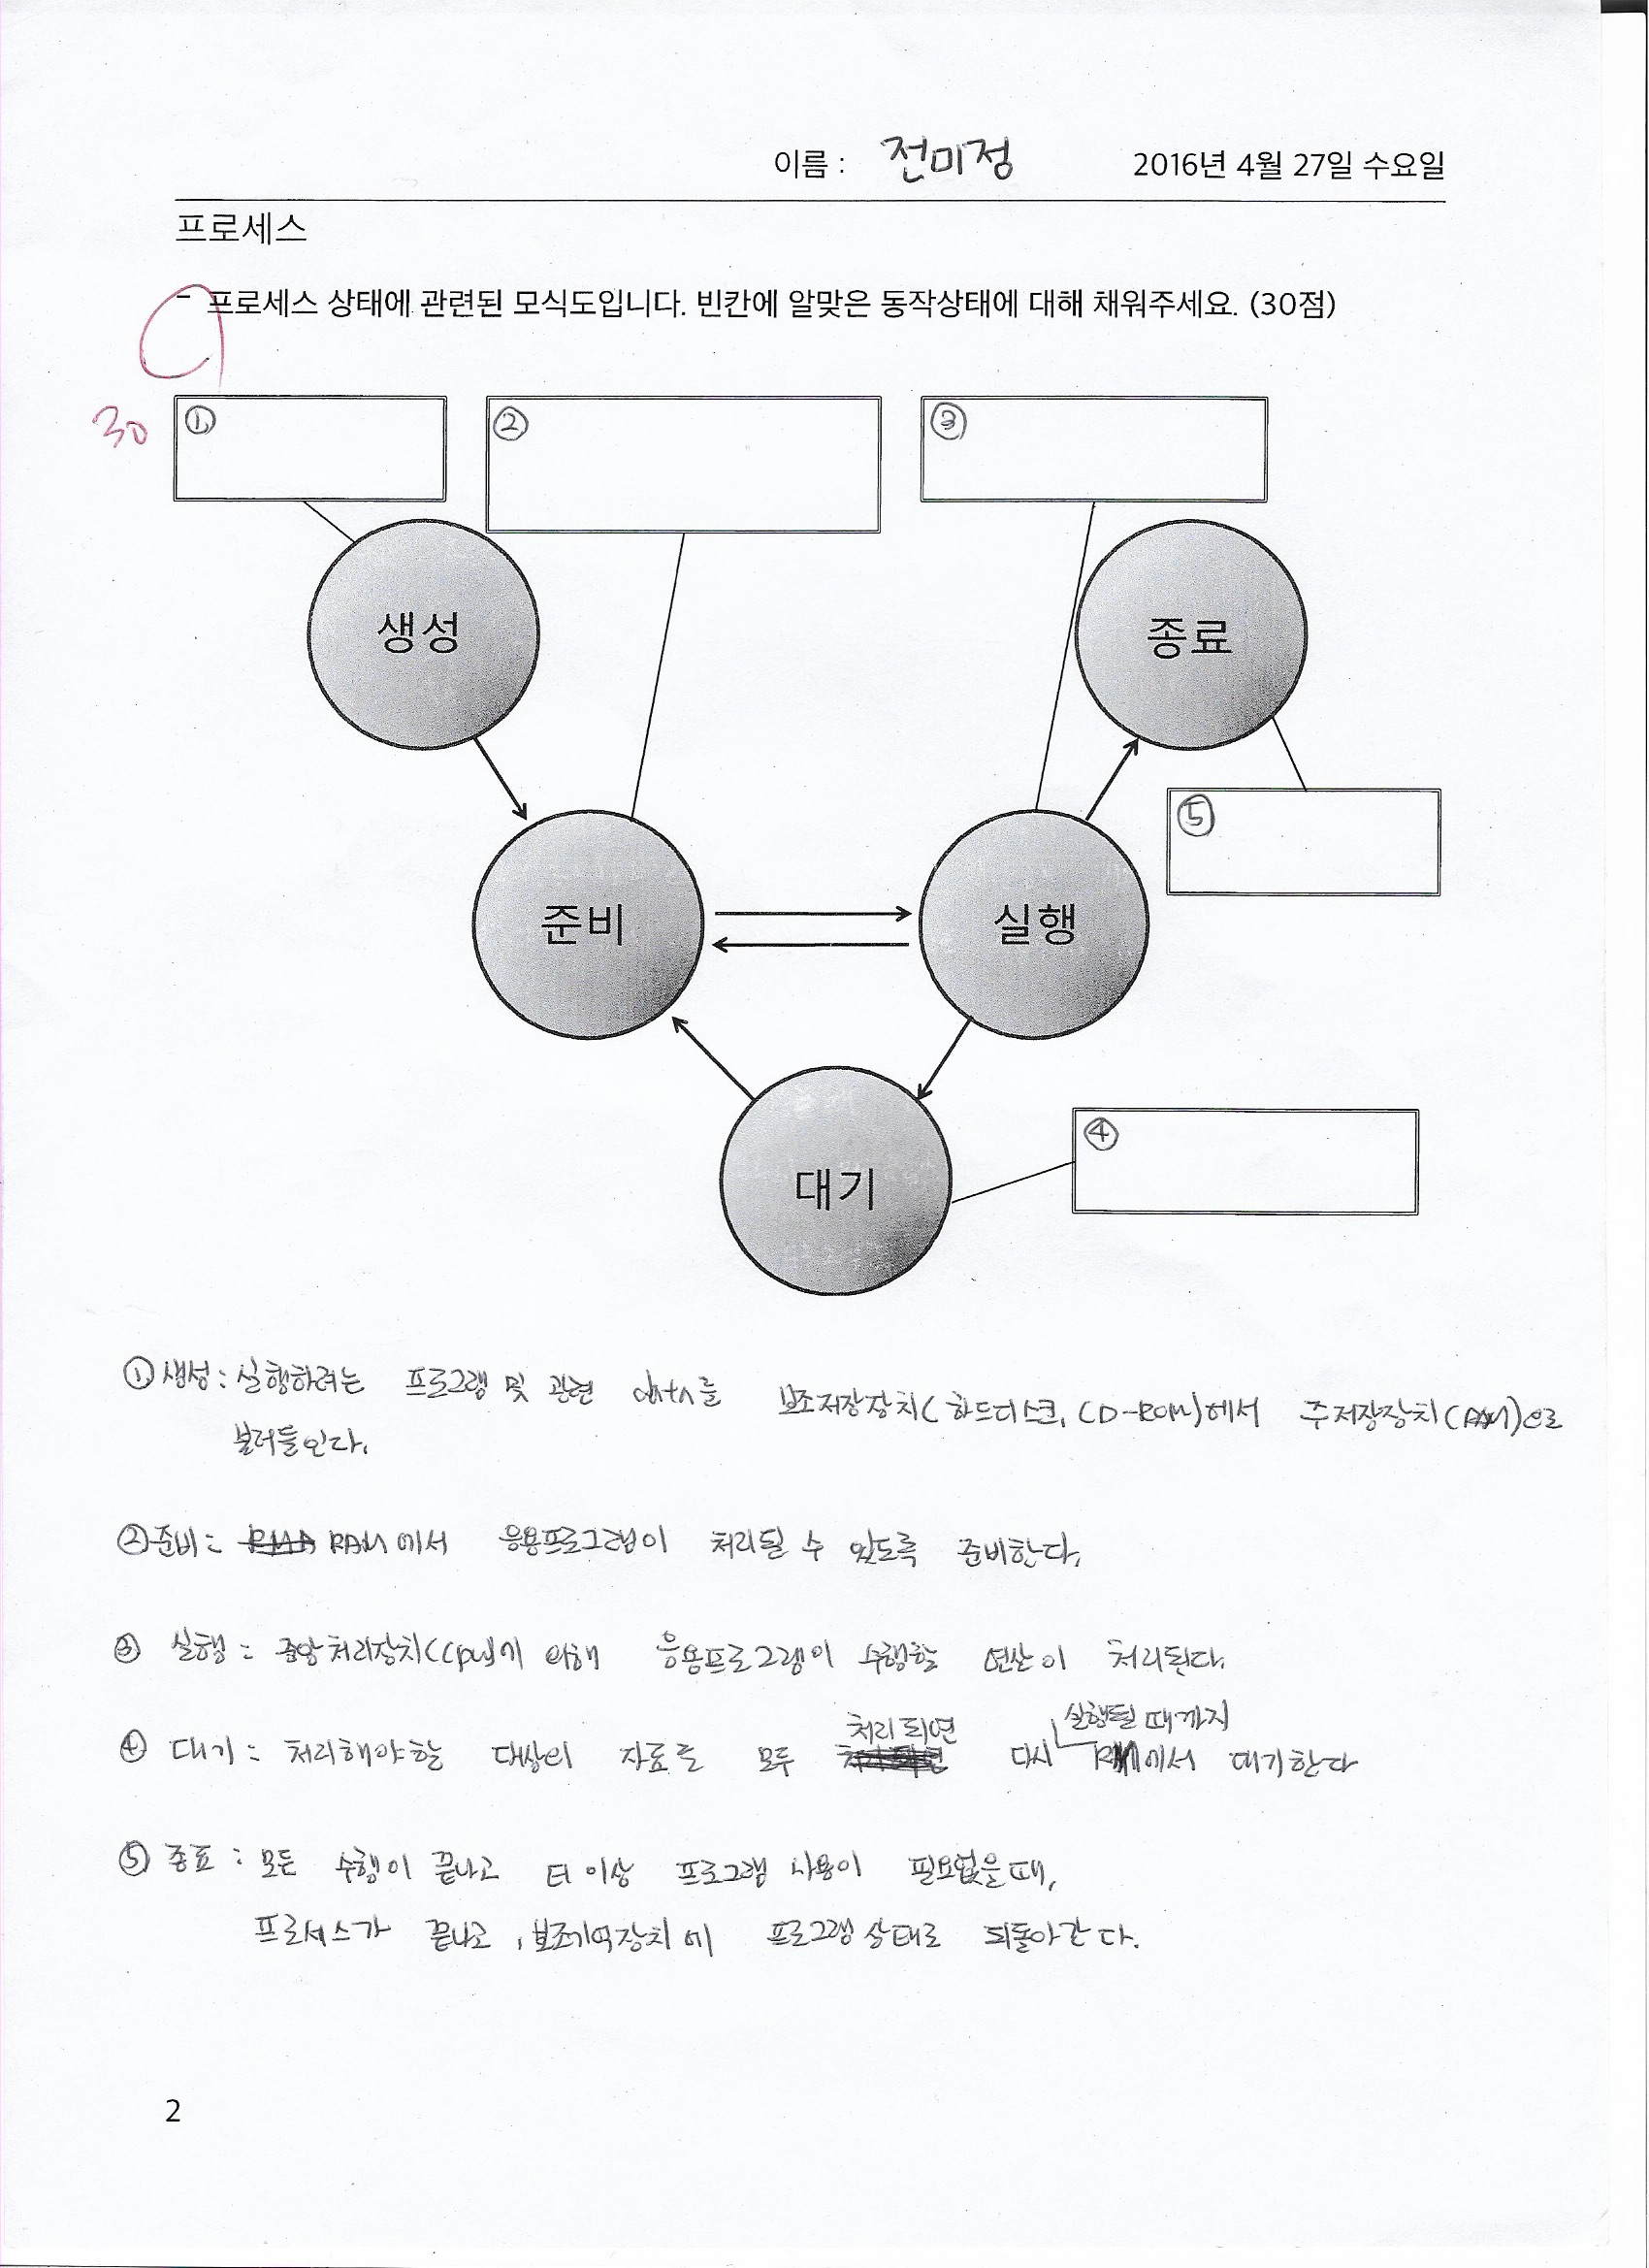 이름 : 전미정 2016년 4월 27일 수요일
프로세스
- 프로세스 상태에 관련된 모식도입니다. 빈칸에 알맞은 동작상태에 대해 채워주세요. (30점)
30
① ② ③
생성 종료
⑤
준비 실행
④
대기
① 생성 : 실행하려는 프로그램 및 관련 data를 보조저장장치(하드디스크, CD-ROM)에서 주저장장치(RAM)으로
불러들인다.
② 준비 : RAM에서 응용프로그램이 처리될 수 있도록 준비한다.
③ 실행 : 중앙처리장치(cpu)에 의해 응용프로그램이 수행할 연산이 처리된다.
④ 대기 : 처리해야할 대상의 자료를 모두 처리되면 다시 실행될 때까지 RAM에서 대기한다
⑤ 종료 : 모든 수행이 끝나고 더 이상 프로그램 사용이 필요없을 때,
프로세스가 끝나고, 보조기억장치에 프로그램 상태로 되돌아간다.
2